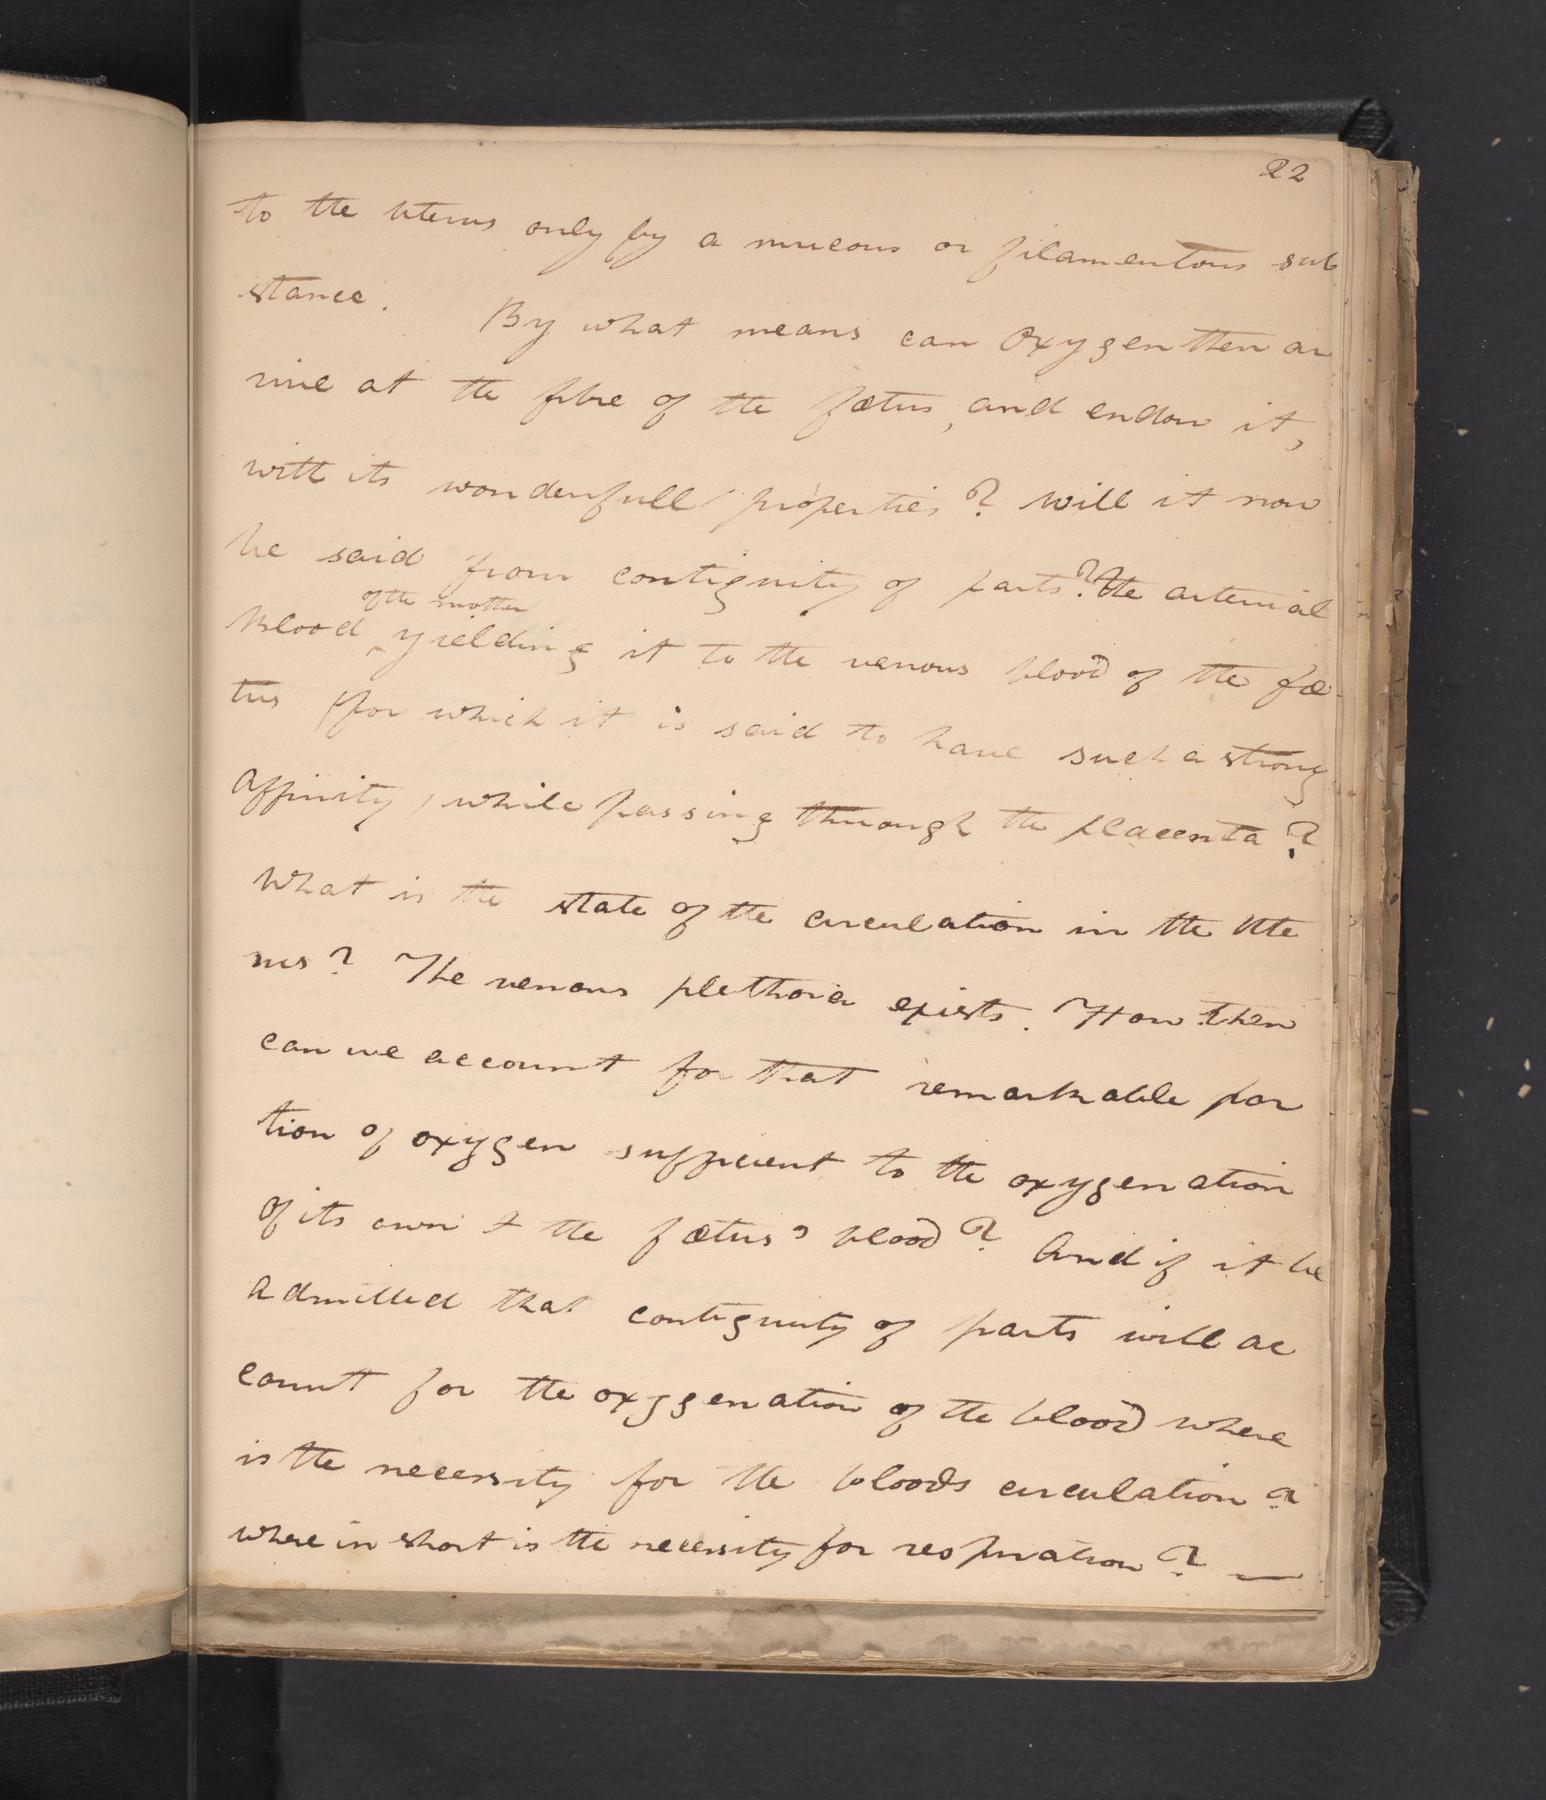 22
to the uterus only by a mucous or filamentous sub
stance. By what means can Oxygen then ar
rive at the fibre of the fœtus, and endow it,
with its wonderfull properties? will it now
be said from contiguity of parts? The arterial
of the mother
Blood ‸ yielding it to the venous blood of the fœ-
tus (for which it is said to have such a strong
affinity, while passing through the placenta?
What is the state of the circulation in the Ute
rus? The venous plethora exists. How then
can we account for that remarkable por
tion of oxygen sufficient to the oxygenation
of its own & the fœtus's blood? And if it be
admitted that contiguity of parts will ac
count for the oxygenation of the blood where
is the necessity for the bloods circulation?
where in short is the necessity for respiration? —